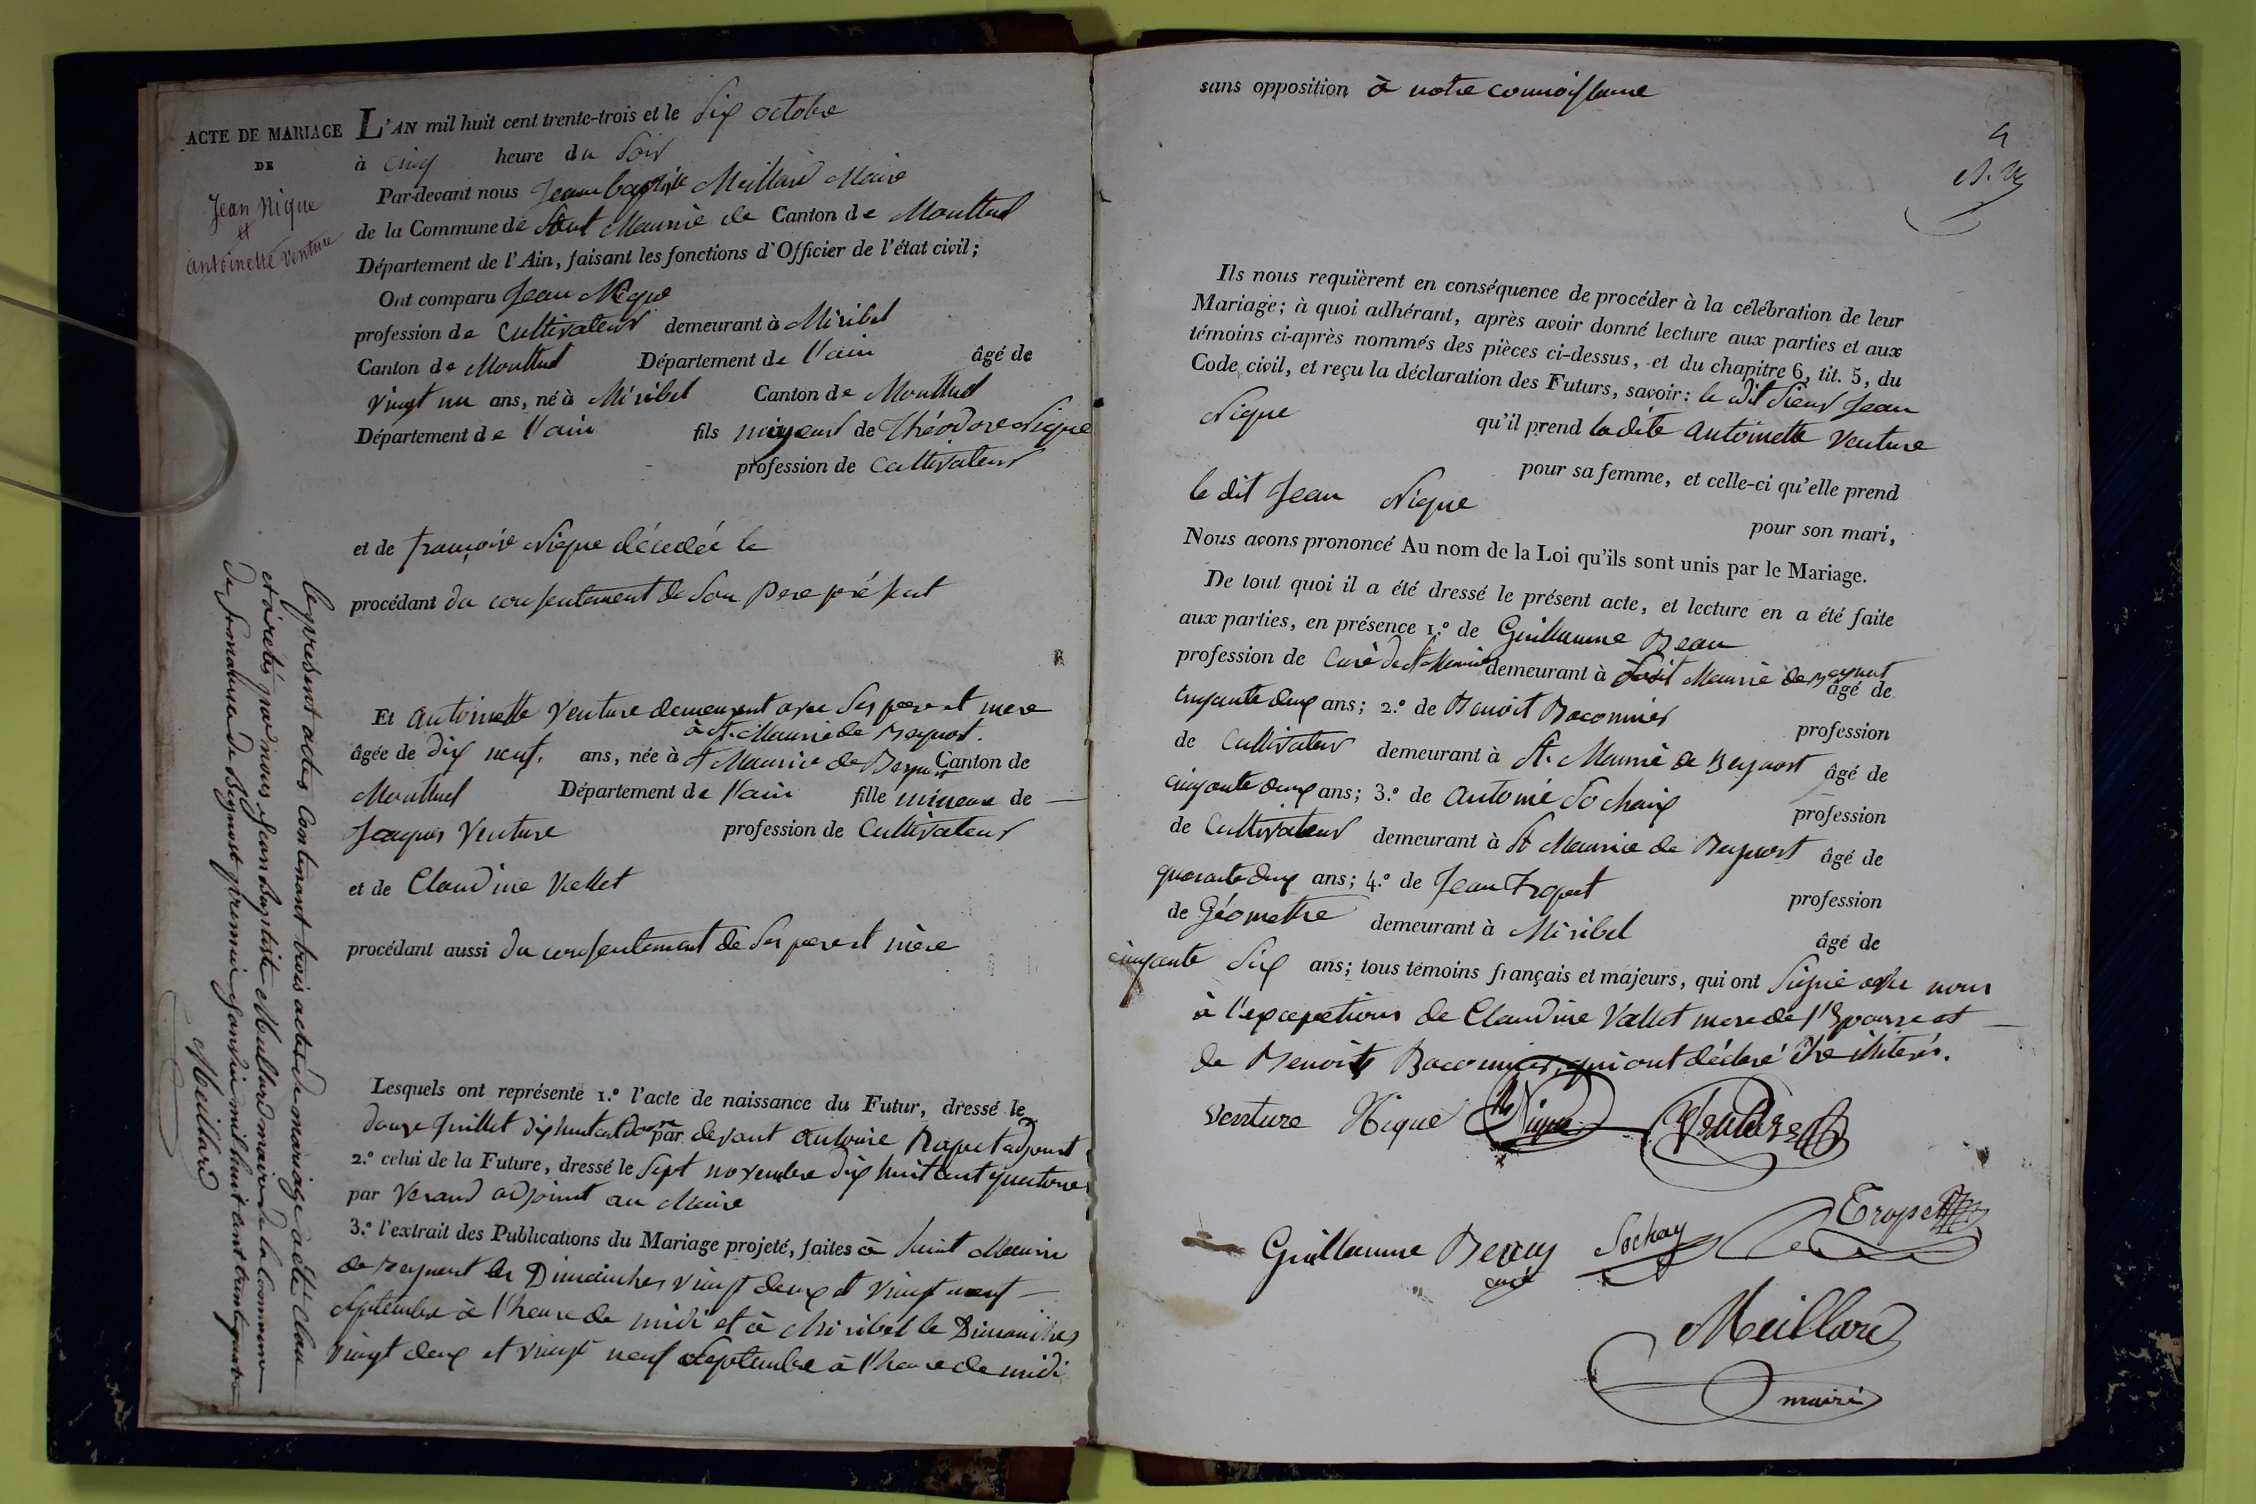 ACTE DE MARIAGE
DE
Jean Nique
et
Antoinette Venture
L'AN mil huit cent trente-trois et le Six octobre
à Cinq heure du Soir
Par-devant nous Jean baptiste Meillard Maire
de la Commune de Saint Maurice de Canton de Montluel
Département de l'Ain, faisant les fonctions d'Officier de l'état civil;
Ont comparu Jean Nique
profession de Cultivateur demeurant à Miribel
Canton de Montluel Département de l'ain âgé de
vingt un ans, né à Miribel Canton de Montluel
Département de l'ain fils majeur de Théodore Nique
profession de Cultivateur
et de françoise Nique décédée le
procédant du consentement de Son Pere présent
Et Antoinette Venture demeurant avec Ses pere et mere
à St. Maurice de Beynost.
âgée de dix neuf. ans, née à St Maurice de Beynost Canton de
Montluel Département de l'ain fille mineure de
Jacques Venture profession de Cultivateur
et de Claudine Vallet
procédant aussi du consentement de Ses pere et mère
Lesquels ont représenté 1.º l'acte de naissance du Futur, dressé le
douze Juillet dix huit cent douze par devant Antoine Rapet adjoint
2.º celui de la Future, dressé le Sept novembre dix huit cent quatorze
par Verand adjoint au Maire
3.º l'extrait des Publications du Mariage projeté, faites à Saint Maurice
de Beynost les Dimanches vingt deux et vingt neuf
Septembre à l'heure de midi et à Miribel le Dimanches
vingt deux et vingt neuf Septembre à l'heure de midi
le présent actes Contenant trois actes de mariage a été Clau
et airetés par nous Jean Baptiste Meillard maire de la Commune
de St maurice de Beynost premier Janvier mil huit cent trente quatre
Meillard
sans opposition à notre connoissance
4
Ils nous requièrent en conséquence de procéder à la célébration de leur
Mariage; à quoi adhérant, après avoir donné lecture aux parties et aux
témoins ci-après nommés des pièces ci-dessus, et du chapitre 6, tit. 5, du
Code civil, et reçu la déclaration des Futurs, savoir: le dit Sieur Jean
Nique qu'il prend la dite Antoinette Venture
pour sa femme, et celle-ci qu'elle prend
le dit Jean Nique
pour son mari,
Nous avons prononcé Au nom de la Loi qu'ils sont unis par le Mariage.
De tout quoi il a été dressé le présent acte, et lecture en a été faite
aux parties, en présence 1.º de Guillaume Beau
profession de Curé de St Maurice demeurant à Saint Maurice de Beynost âgé de
cinquante deux ans; 2.º de Benoit Baconnier profession
de Cultivateur demeurant à St. Maurice de Beynost âgé de
cinquante deux ans; 3.º de Antoine Sochaix profession
de Cultivateur demeurant à St Maurice de Beynost âgé de
quarante deux ans; 4.º de Jean Tropet profession
de Géomettre demeurant à Miribel âgé de
cinquante Six ans; tous témoins français et majeurs, qui ont Signé avec nous
à l'exceptions de Claudine Vallet mere de l'Epouse et
de Benoits Baconnier, qui ont déclaré être illiterés.
venture Nique Nique Venture
Guillaume curé Sochay Tropet
Meillard
maire